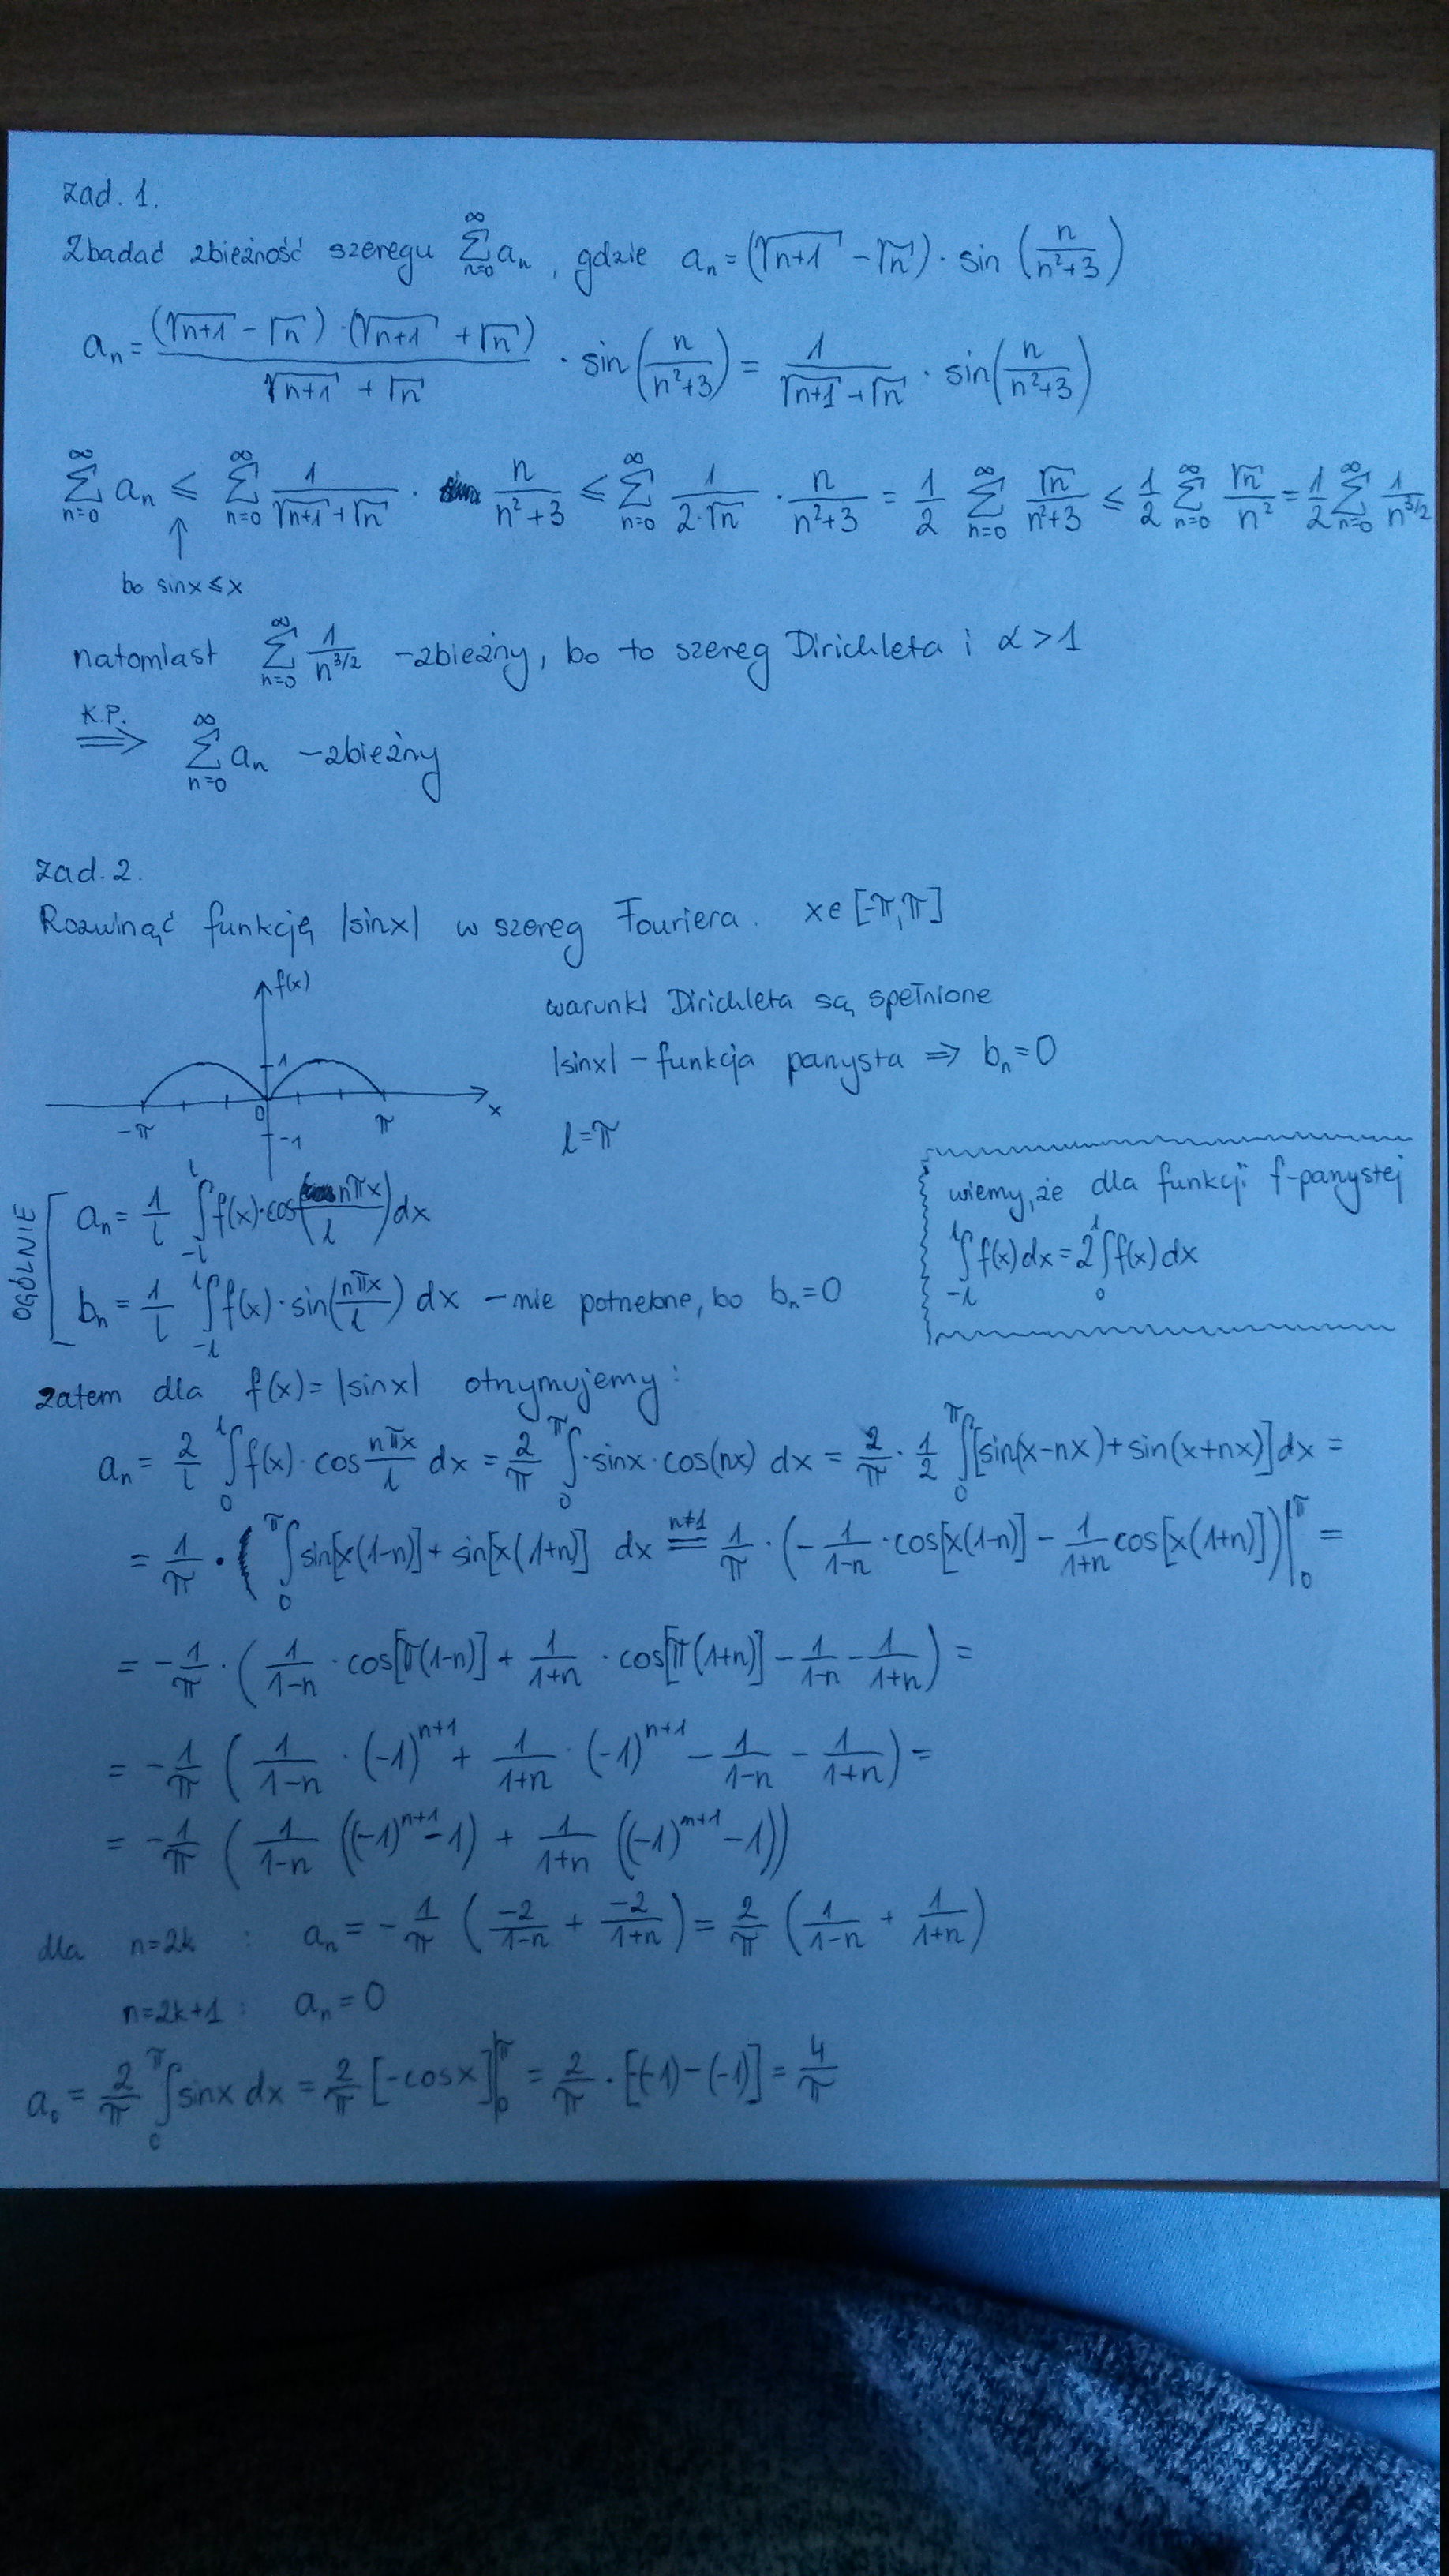 zad. 1.
Zbadać zbieżność szeregu ∑_{n=0}^{∞} a_n, gdzie a_n = (√(n+1) - √n) · sin (n/(n²+3))
a_n = ((√(n+1) - √n) · (√(n+1) + √n))/(√(n+1) + √n) · sin(n/(n²+3)) = 1/(√(n+1) + √n) · sin(n/(n²+3))
∑_{n=0}^{∞} a_n ≤ ∑_{n=0}^{∞} 1/(√(n+1) + √n) · n/(n²+3) ≤ ∑_{n=0}^{∞} 1/(2·√n) · n/(n²+3) = 1/2 ∑_{n=0}^{∞} √n/(n²+3) ≤ 1/2 ∑_{n=0}^{∞} √n/n² = 1/2 ∑_{n=0}^{∞} 1/n^{3/2}
↑
bo sinx ≤ x
natomiast ∑_{n=0}^{∞} 1/n^{3/2} - zbieżny, bo to szereg Dirichleta i α > 1
K.P. ⟹ ∑_{n=0}^{∞} a_n - zbieżny
zad. 2.
Rozwinąć funkcję |sinx| w szereg Fouriera. x∈[-π,π]
f(x)
1
0
x
-π
π
-1
warunki Dirichleta są spełnione
|sinx| - funkcja parzysta ⟹ b_n = 0
l = π
OGÓLNIE
a_n = 1/l ∫_{-l}^{l} f(x)·cos(nπx/l) dx
b_n = 1/l ∫_{-l}^{l} f(x)·sin(nπx/l) dx - nie potrzebne, bo b_n = 0
wiemy, że dla funkcji f-parzystej
∫_{-l}^{l} f(x) dx = 2∫_{0}^{l} f(x) dx
zatem dla f(x) = |sinx| otrzymujemy:
a_n = 2/l ∫_{0}^{l} f(x)·cos nπx/l dx = 2/π ∫_{0}^{π} ·sinx·cos(nx) dx = 2/π · 1/2 ∫_{0}^{π} [sin(x-nx) + sin(x+nx)] dx =
= 1/π · ( ∫_{0}^{π} sin[x(1-n)] + sin[x(1+n)] dx =^{n≠1} 1/π · (-1/(1-n) · cos[x(1-n)] - 1/(1+n) cos[x(1+n)])|_{0}^{π} =
= -1/π · (1/(1-n) · cos[π(1-n)] + 1/(1+n) · cos[π(1+n)] - 1/(1-n) - 1/(1+n)) =
= -1/π (1/(1-n) · (-1)^{n+1} + 1/(1+n) · (-1)^{n+1} - 1/(1-n) - 1/(1+n)) =
= -1/π (1/(1-n) ((-1)^{n+1} - 1) + 1/(1+n) ((-1)^{n+1} - 1))
dla n=2k : a_n = -1/π (-2/(1-n) + -2/(1+n)) = 2/π (1/(1-n) + 1/(1+n))
n=2k+1 : a_n = 0
a_0 = 2/π ∫_{0}^{π} sinx dx = 2/π [-cosx]|_{0}^{π} = 2/π · [-(-1) - (-1)] = 4/π